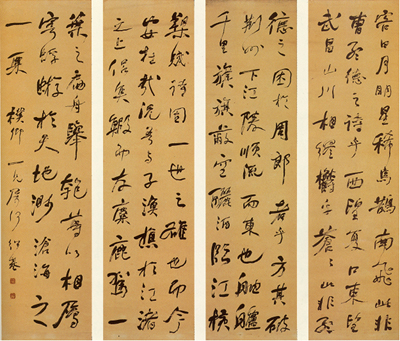 客曰月明星稀烏鵲南飛此非
曹孟德之詩乎西望夏口東望
武昌山川相繆鬱乎蒼蒼此非孟
德之困於周郎者乎方其破
荊州下江陵順流而東也舳艫
千里旌旗蔽空釃酒臨江橫
槊賦詩固一世之雄也而今
安在哉況吾與子漁樵於江渚
之上侶魚蝦而友麋鹿駕一
葉之扁舟舉匏尊以相屬
寄蜉蝣於天地渺滄海之
一粟 何紹基